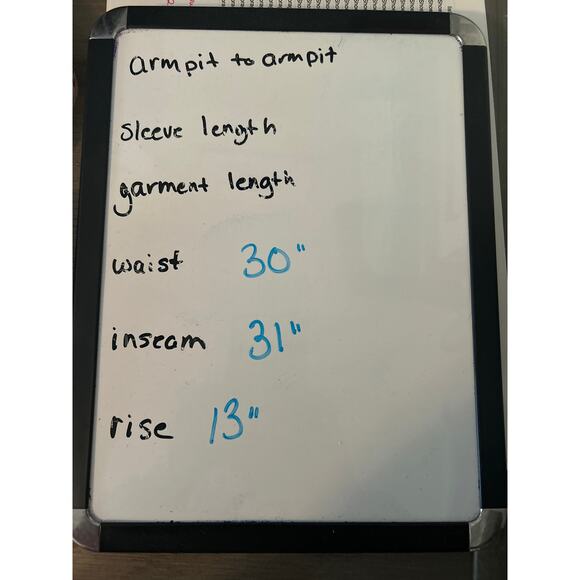 armpit to armpit
sleeve length
garment length
waist 30"
inseam 31"
rise 13"